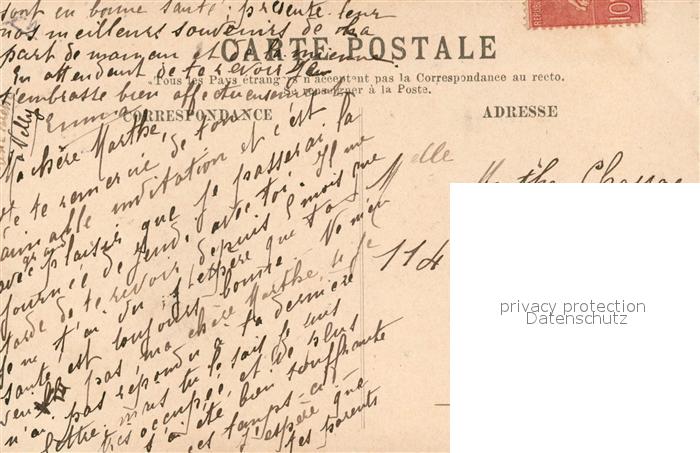 sont en bonne santé. présente leur
nos meilleurs souvenirs de ma
part de maman et de la mienne.
En attendant de te revoir je
t'embrasse bien affectueusement
Emma
RÉPUBLIQUE
10
CARTE POSTALE
Tous les Pays étrangers n'acceptent pas la Correspondance au recto.
se renseigner à la Poste.
CORRESPONDANCE
ADRESSE
Ma chère Marthe,
Je te remercie de ton
aimable invitation et c'est
avec grand plaisir que je passerai la
journée de jeudi avec toi. Il me
tarde de te revoir depuis mois que
je ne t'ai vu j'espère que ta
santé est toujours bonne. Ne m'en
veuille pas, ma chère Marthe, si je
n'ai pas répondu à ta dernière
lettre, mais tu le sais je suis
très occupée, et de plus
j'ai été bien souffrante
ces temps-ci.
J'espère que
tes parents
Melle
Marthe
114
privacy protection
Datenschutz